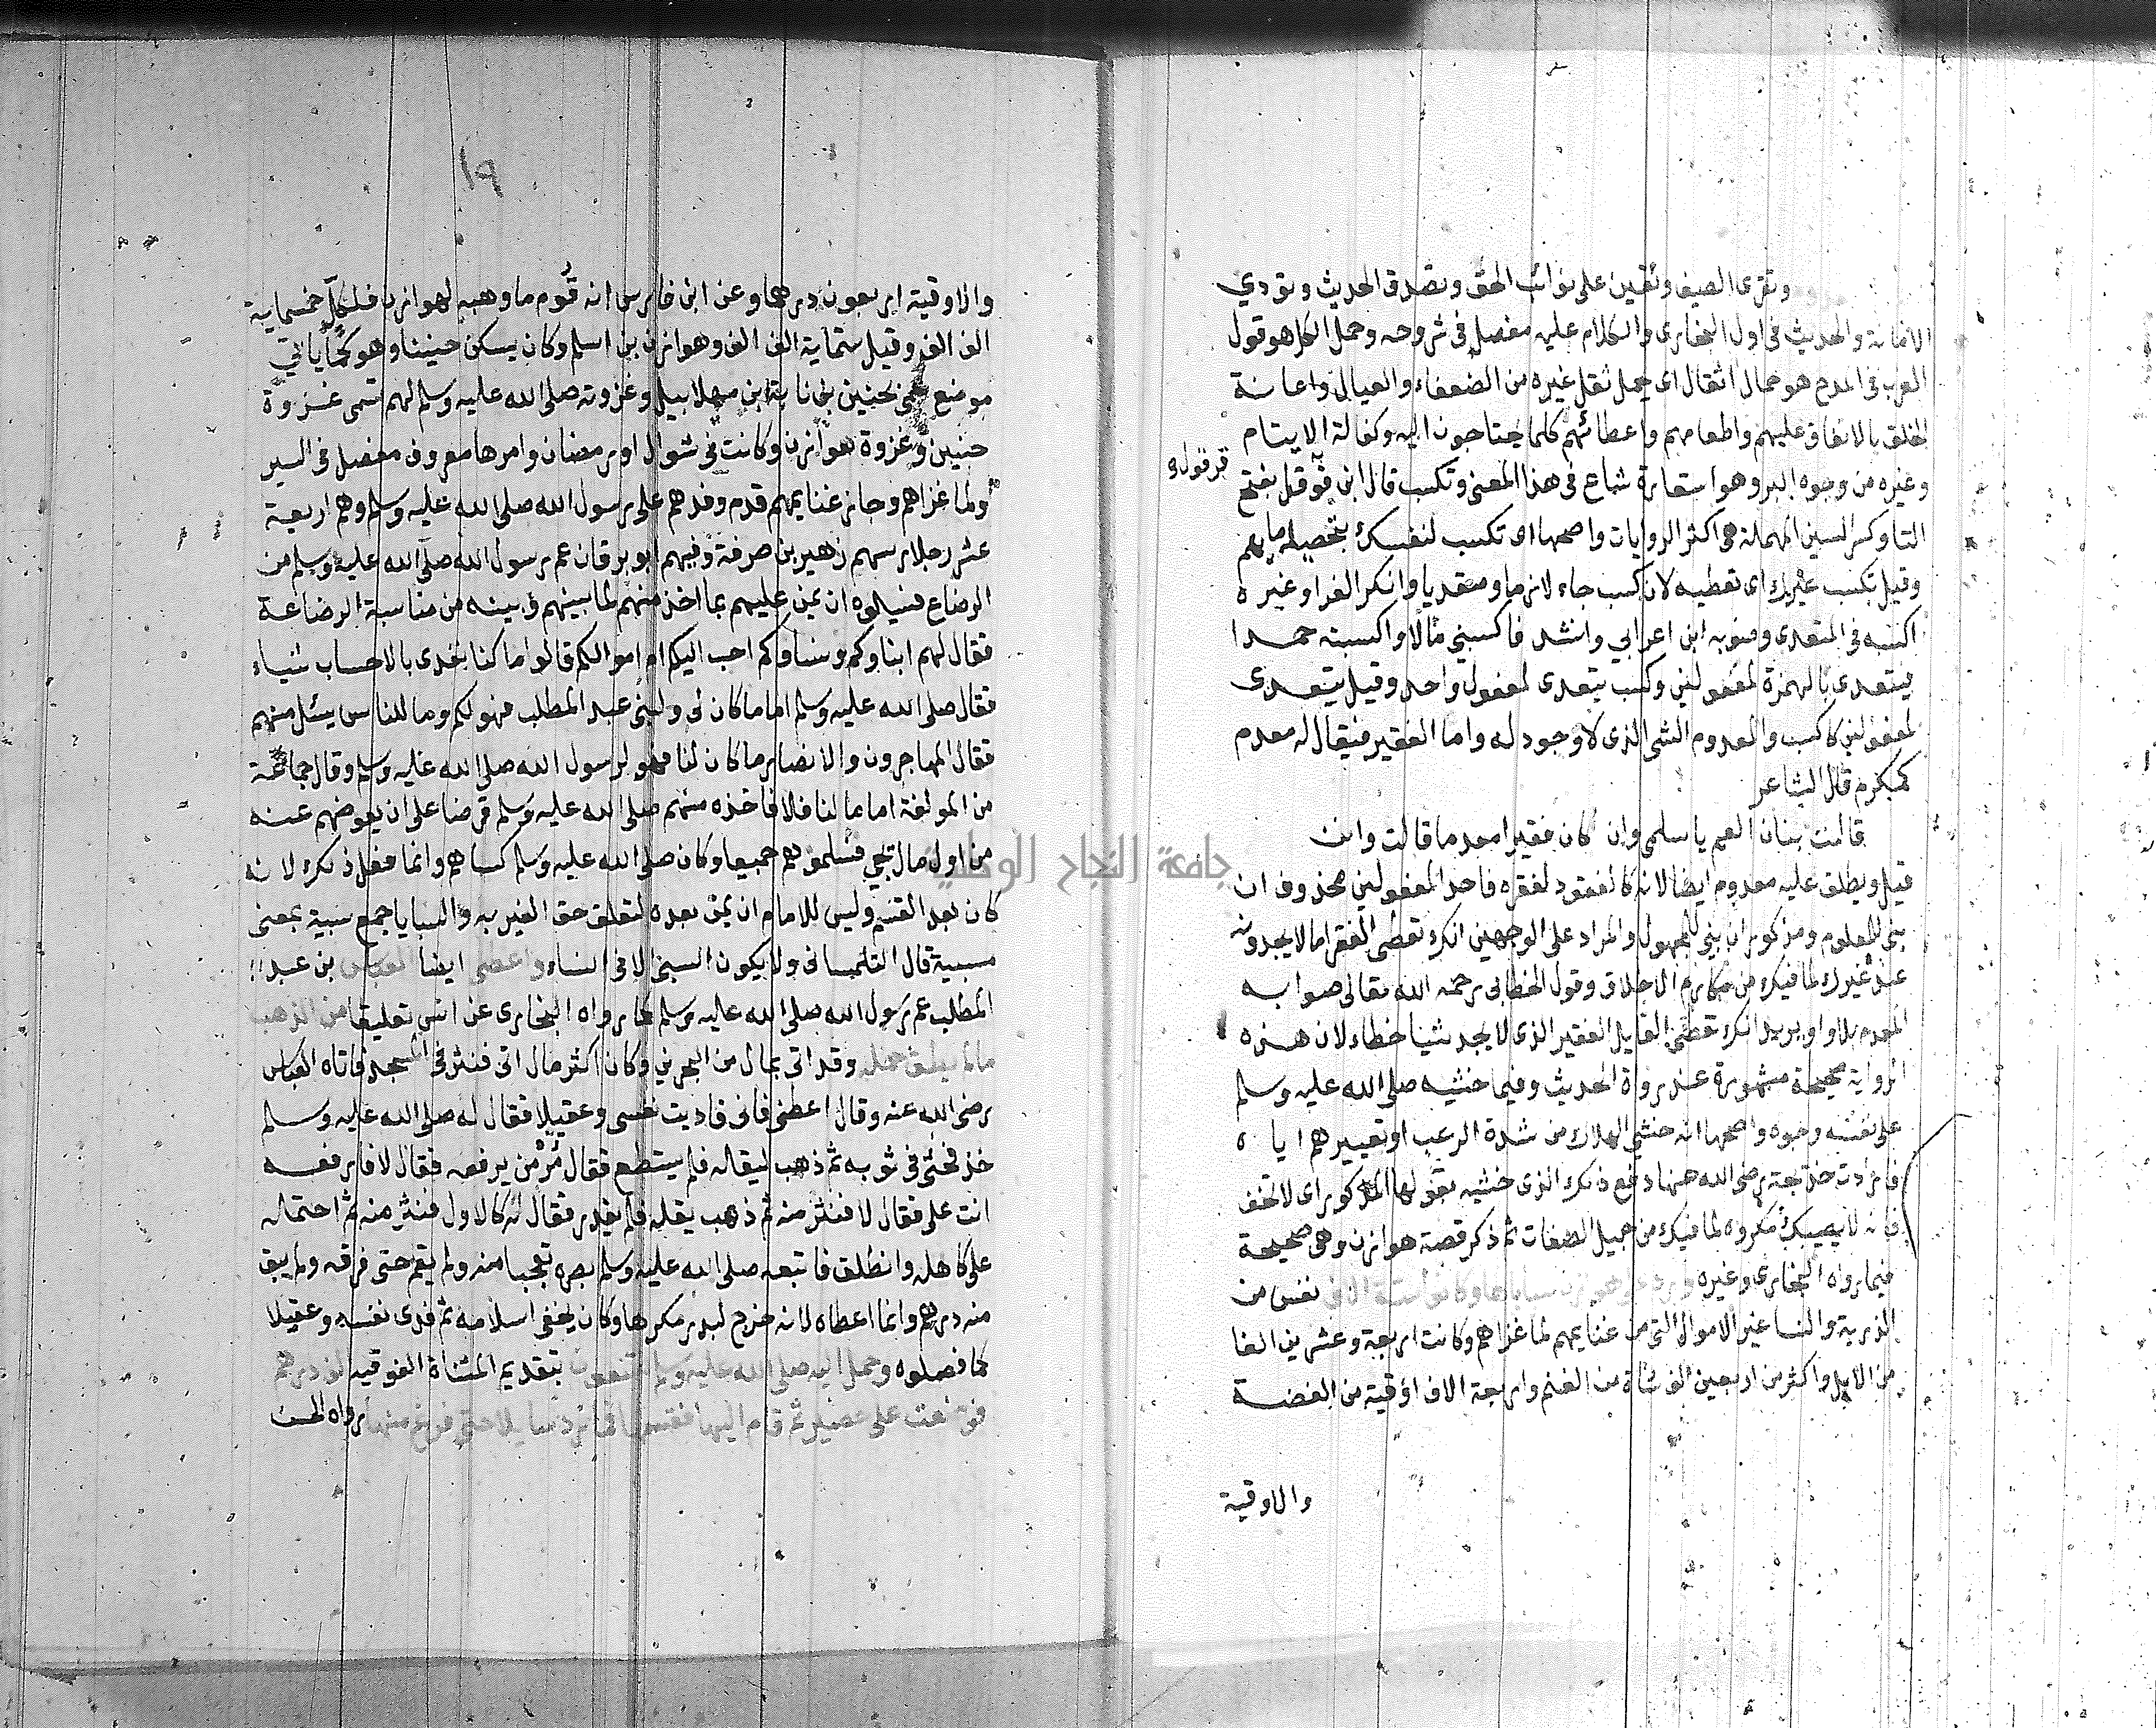 وتقرى الضيف وتعين على نوائب الحق وتصدق الحديث وتودي
الامانة والحديث في اول البخارى والكلام عليه مفصل في شروحه وحمل الكل هو قول
العرب في المدح هو حمال اثقال اى يحمل ثقل غيره من الضعفاء والعيال واعانة
الخلق بالانفاق عليهم واطعامهم واعطائهم كلما يحتاجون اليه وكفالة الايتام
وغيره من وجوه البر وهو استعارة شاع في هذا المعنى وتكسب قال ابن قرقول بفتح
قرقول
التا وكسر السين المهملة هى اكثر الروايات واصحها اى تكسب لنفسك بتحصيله
وقيل تكسب غيرك اى تعطيه لان كسب جاء لازما ومتعديا وانكر الفرا وغيره
اكسبه في المتعدى وصوبه ابن اعرابي وانشد فاكسبني مالا واكسبته حمدا
فيتعدى بالهمزة لمفعولين وكسب يتعدى لمفعول واحد وقيل يتعدى
لمفعولين كاكسب والمعدوم الشى الذى لا وجود له واما الفقير فيقال له معدم
كمكرم قال الشاعر
قالت بنات العم يا سلمى وان كان فقيرا معدما قالت وانن
قيل ويطلق عليه معدوم ايضا لانه كالمفقود لفقره فاحد المفعولين محذوف ان
بنى للمعلوم ومذكور ان بني للمجهول والمراد على الوجهين انك تعطى الفقرا ما لا يجدونه
عند غيرك لما فيك من مكارم الاخلاق وقول الخطابى رحمه الله تعالى صوابه
المعدم بلا واو يريد انك تعطى القايل الفقير الذى لا يجد شيا خطاء لان هذه
الرواية صحيحة مشهورة عند رواة الحديث وفيما خشيه صلى الله عليه وسلم
على نفسه وجوه واصحها انه خشى الهلاك من شدة الرعب او تعييرهم اياه
فارادت خديجة رضى الله عنها دفع ذلك الذى خشيه بقولها المذكور اى لا تخف
فانه لا يصيبك مكروه لما فيك من جميل الصفات ثم ذكر قصة هوازن وهى صحيحة
فيما رواه البخارى وغيره ورد على هوازن سباياها وكانوا ستة الاف نفس من
الذرية والنسا غير الاموال التى من غنايمهم لما غزاهم وكانت اربعة وعشرين الفا
من الابل واكثر من اربعين الف شاة من الغنم واربعة الاف اوقية من الفضة
والاوقية
١٩
والاوقية اربعون درهما وعن ابن فارس انه قوم ما وهبه لهوازن فكان خمسماية
الف الف وقيل ستماية الف الف وهوازن بن اسلم وكان يسكن حنينا وهو كما ياتي
موضع سمى بحنين بن ناية ابن مهلابيل وغزوته صلى الله عليه وسلم لهم تسمى غزوة
حنين وغزوة هوازن وكانت في شوال او رمضان وامرها معروف مفصل في السير
ولما غزاهم وحاز غنايمهم قدم وفدهم على رسول الله صلى الله عليه وسلم وهم اربعة
عشر رجلا رسهم زهير بن صرفة وفيهم ابو برقان عم رسول الله صلى الله عليه وسلم من
الرضاع فسيلوه ان يمن عليهم بما اخذ منهم لما بينهم وبينه من مناسبة الرضاعة
فقال لهم ابناوكم ونساوكم احب اليكم ام اموالكم قالوا ما كنا نعدى بالاحساب شياء
فقال صلى الله عليه وسلم اما ما كان لى ولبنى عبد المطلب فهو لكم وما للناس يسئل منهم
فقال المهاجرون والانصار ما كان لنا فهو لرسول الله صلى الله عليه وسلم وقال جماعة
من المولفة اما ما لنا فلا فاخذه منهم صلى الله عليه وسلم قرضا على ان يعوضهم عنه
من اول مال يجي فسلموهم جميعا وكان صلى الله عليه وسلم كساهم وانما فعل ذلك لانه
كان بعد القسم وليس للامام ان يمن بعده لتعلق حق الغير به والسبايا جمع سبية بمعنى
مسبية قال التلمسانى ولا يكون السبى الا فى النساء واعطى ايضا العباس بن عبد
المطلب عم رسول الله صلى الله عليه وسلم كما رواه البخارى عن انس تعليقا من الذهب
ما لم يطق حمله وقد اتى بمال من البحرين وكان اكثر مال اتى فنثر فى المسجد فاتاه العباس
رضى الله عنه وقال اعطنى فانى فاديت نفسى وعقيلا فقال له صلى الله عليه وسلم
خذ فحثى فى ثوبه ثم ذهب ليقاله فلم يستطع فقال مر من يرفعه فقال لا فارفعه
انت على فقال لا فنثر منه ثم ذهب يقله فلم يقدر فقال له كالاول فنثر منه ثم احتمله
على كاهله وانطلق فاتبعه صلى الله عليه وسلم بصره تعجبا منه ولم يقم حتى فرقه ولم يبق
منه درهم وانما اعطاه لانه خرج لبدر مكرها وكان يخفى اسلامه ثم فدى نفسه وعقيلا
كما فصلوه وحمل اليه صلى الله عليه وسلم تسعون بتقديم المثناة الفوقيه الف درهم
فوضعت على حصير ثم قام اليها فقسمها فما رد سايلا حتى فرغ منها رواه الحسن
جامعة النجاح الوطنية